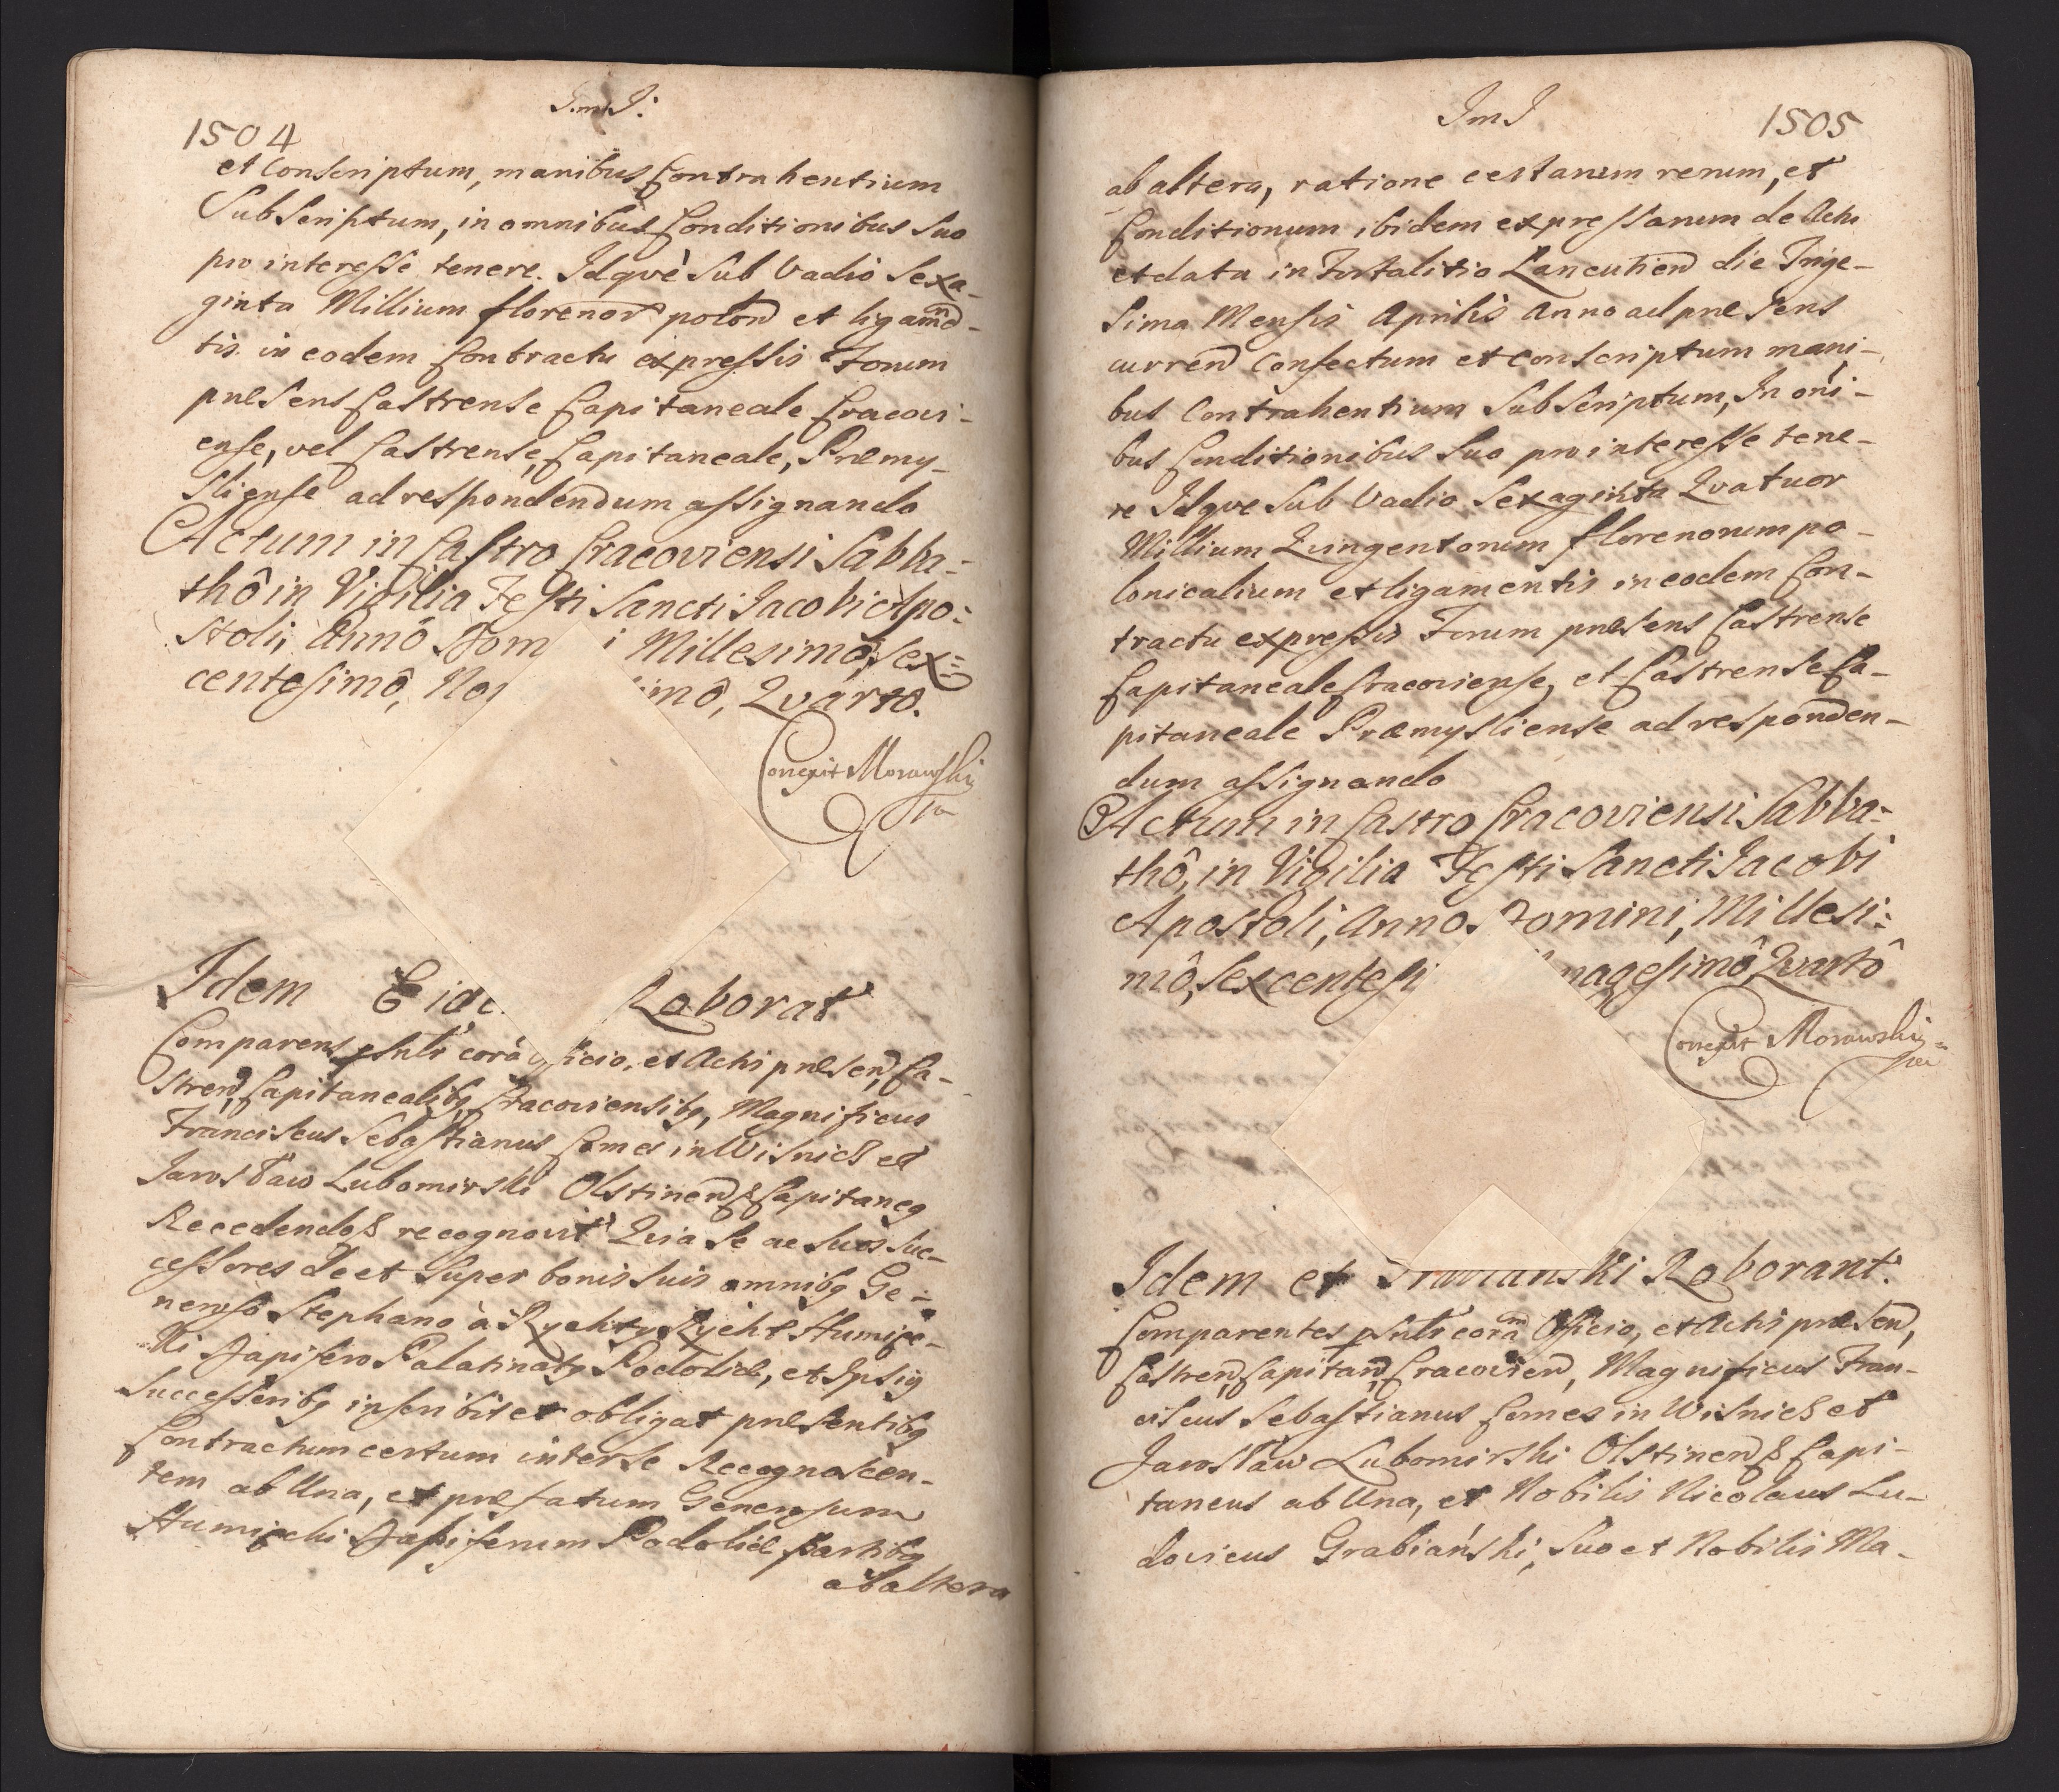 J.m.J:
1504
et Conscriptum, manibus Contrahentium
Subscriptum, in omnibus Conditionibus suo
pro interesse tenere. Idqvè sub Vadio Sexa-
ginta Millium florenor polon et ligamē-
tis in eodem Contractu expressis Forum
præsens Castrense Capitaneale Cracovi-
ense, vel Castrense, Capitaneale, Præmy-
sliense ad respondendum assignando
Actum in Castro Cracoviensi Sabba-
thô in Vigilia Festi Sancti Jacobi Apo:
stoli, Annô Dom i Millesimô, Sex-
centesimô, No imô, Qvartô.
Correxit Morawski
Idem Eide Roborat
Comparens psntr corā fficio, et Actis præsen, Ca-
stren, Capitanealibq Cracoviensibq, Magnificus
Franciscus Sebastianus Comes in Wisnicz et
Jarosław Lubomirski Olstinen Capitaneq
Recedendo recognovit Qvia se ac suos suc-
cessores de et super bonis suis omnibq Ge-
neroso Stephano à Rychty Rycht Humie-
cki Dapifero Palatinatq Podoliæ, et Ipsiq
Successoribq inscribit et obligat præsentibq
Contractum certum inter se Recognoscen-
tem ab Una, et præfatum Generosum
Humiecki Dapiferum Podoliæ partibq
ab altera
JmJ
1505
ab altera, ratione certarum rerum, et
Conditionum ibidem expressarum de Actu
et data in Fortalitio Lancutien die Trige-
sima Mensis Aprilis Anno ad præsens
curren Confectum et Conscriptum mani-
bus Contrahentium Subscriptum, In oni-
bus Conditionibus suo pro interesse tene-
re Idqve sub Vadio Sexaginta Qvatuor
Millium Qvingentorum florenorum po-
lonicalium et ligamentis in eodem Con-
tractu expressis Forum præsens Castrense
Capitaneale Cracoviense, et Castrense Ca-
pitaneale Præmysliense ad responden-
dum assignando
Actum in Castro Cracoviensi Sabba-
thô, in Vigilia Festi Sancti Jacobi
Apostoli, Anno Domini, Millesi:
mô, Sexcentesi nagesimô, Qvartô
Correxit Morawski
Idem et Grabianski Roborant.
Comparentes psntr corā Officio, et Actis præsen,
Castren, Capitan, Cracovien, Magnificus Fran-
ciscus Sebastianus Comes in Wisnicz et
Jarosław Lubomirski Olstinen Capi-
taneus ab Una, et Nobilis Nicolaus Lu-
dovicus Grabiański, suo et Nobilis Ma-